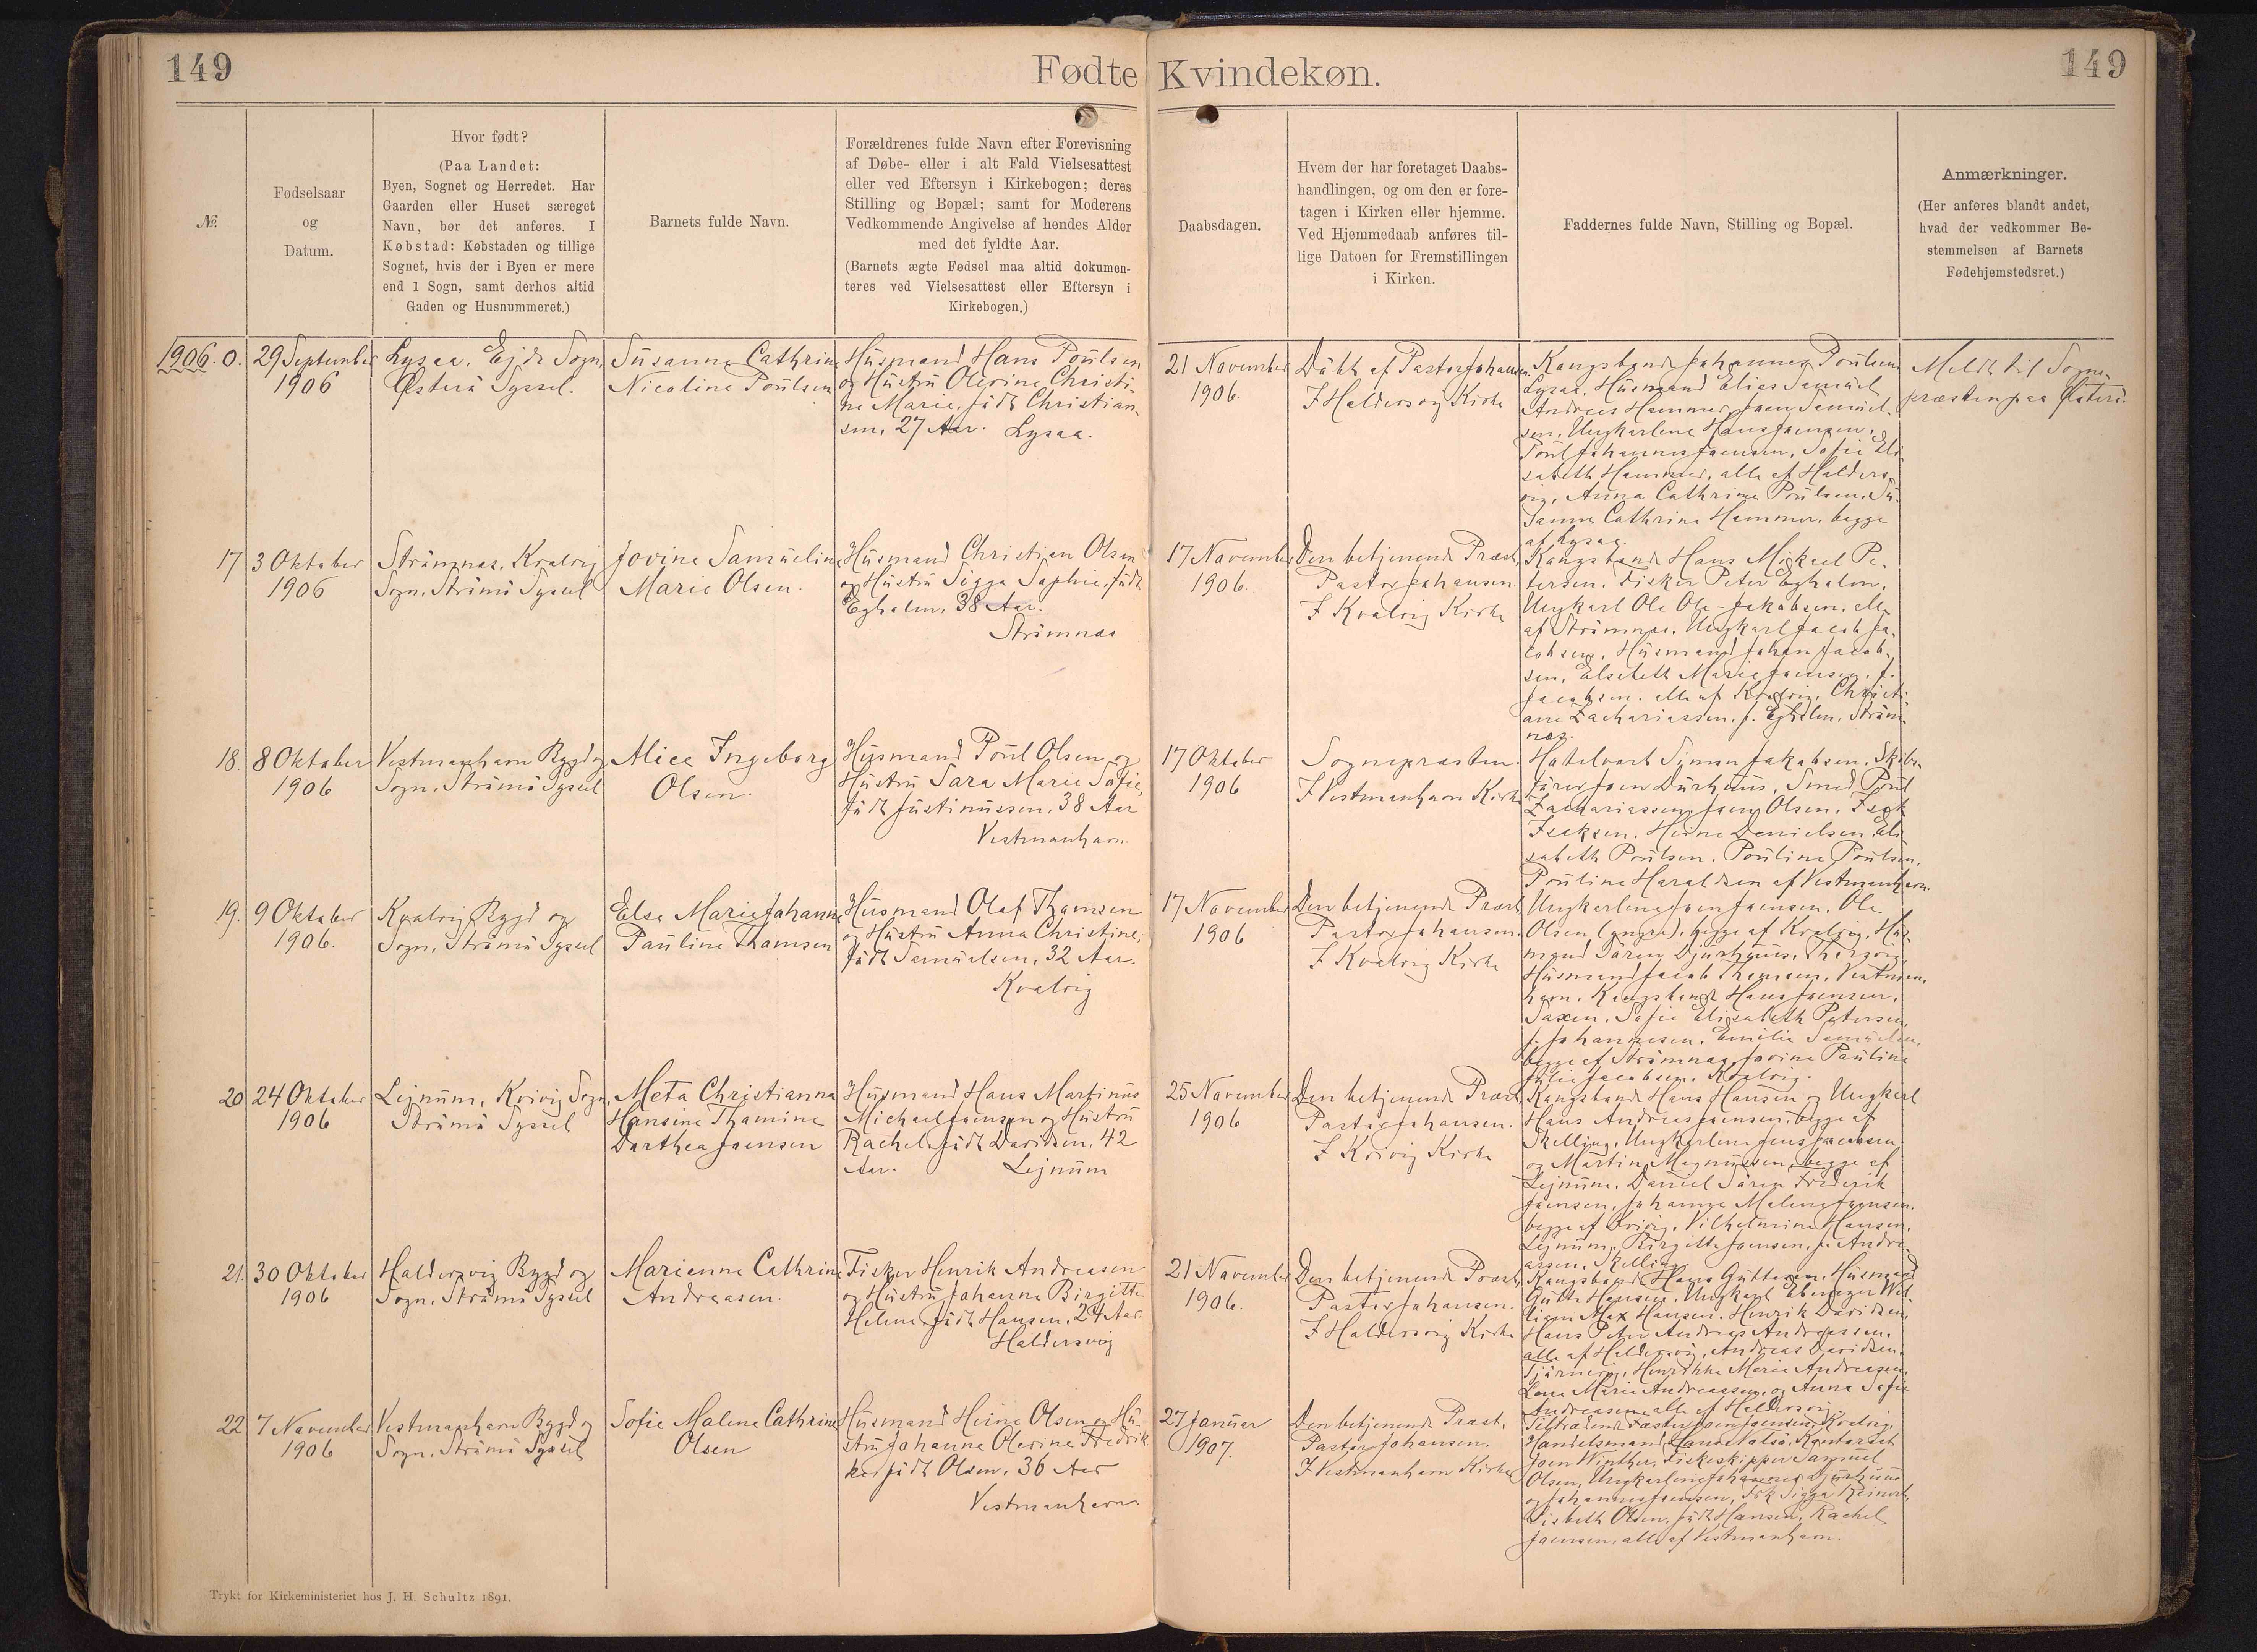 149
Fødte Kvindekøn.
149
№.
Fødselsaar
og
Datum.
Hvor født?
(Paa Landet:
Byen, Sognet og Herredet. Har
Gaarden eller Huset særeget
Navn, bør det anføres. I
Købstad: Købstaden og tillige
Sognet, hvis der i Byen er mere
end 1 Sogn, samt derhos altid
Gaden og Husnummeret.)
Barnets fulde Navn.
Forældrenes fulde Navn efter Forevisning
af Døbe- eller i alt Fald Vielsesattest
eller ved Eftersyn i Kirkebogen; deres
Stilling og Bopæl; samt for Moderens
Vedkommende Angivelse af hendes Alder
med det fyldte Aar.
(Barnets ægte Fødsel maa altid dokumen-
teres ved Vielsesattest eller Eftersyn i
Kirkebogen.)
Daabsdagen.
Hvem der har foretaget Daabs-
handlingen, og om den er fore-
tagen i Kirken eller hjemme.
Ved Hjemmedaab anføres til-
lige Datoen for Fremstillingen
i Kirken.
Faddernes fulde Navn, Stilling og Bopæl.
Anmærkninger.
(Her anføres blandt andet,
hvad der vedkommer Be-
stemmelsen af Barnets
Fødehjemstedsret.)
1906. 0.
29 September
1906
Lysaa, Ejde Sogn,
Østerø Syssel.
Susanna Cathrine
Nicoline Poulsen
Husmand Hans Poulsen
og Hustru Olevine Christi-
ne Marie, født Christian-
sen, 27 Aar. Lysaa.
21 November
1906.
Døbt af Pastor Johansen.
I Haldersvig Kirke
Kongsbonde Johannes Poulsen
Lysaa, Husmand Elias Samuel
Andreas Hammer, Joen Samuel-
sen, Ungkarlene Hans Joensen,
Poul Johannes Joensen, Sofie Eli-
sabeth Hammer, alle af Halders-
vig, Anna Cathrine Poulsen, Su-
sanna Cathrine Hammer, begge
af Lysaa.
Meldt til Sogne-
præsten paa Østerø.
17
3 Oktober
1906
Strømnæs, Kvalvig
Sogn, Strømø Syssel
Jovine Samueline
Marie Olsen.
Husmand Christian Olsen
og Hustru Sigga Sophie, født
Egholm, 38 Aar.
Strømnæs
17 November
1906.
Den betjenende Præst,
Pastor Johansen.
I Kvalvig Kirke
Kongsbonde Hans Mikael Pe-
tersen, Fisker Peter Egholm,
Ungkarl Ole Ole-Jakobsen, alle
af Strømnæs, Ungkarl Jacob Ja-
cobsen, Husmand Johan Jacob-
sen, Elsebeth Marie Joensen, f.
Jacobsen, alle af Kvalvig, Christi-
ane Zachariassen, f. Egholm, Strøm-
næs.
18.
8 Oktober
1906
Vestmanhavn Bygd og
Sogn, Strømø Syssel
Alice Ingeborg
Olsen.
Husmand Poul Olsen og
Hustru Sara Marie Sofie,
født Justinussen, 38 Aar
Vestmanhavn.
17 Oktober
1906
Sognepræsten.
I Vestmanhavn Kirke
Hotelvært Simon Jakobsen, Skibs-
fører Joen Dürhuus, Smed Poul
Zachariassen, Joen Olsen, Isak
Isaksen, Heine Danielsen, Eli-
sabeth Poulsen, Pouline Poulsen,
Pouline Haraldsen af Vestmanhavn.
19.
9 Oktober
1906.
Kvalvig Bygd og
Sogn, Strømø Syssel
Elsa Marie Johanne
Pauline Thomsen
Husmand Olaf Thomsen
og Hustru Anna Christine,
født Samuelsen, 32 Aar.
Kvalvig
17 November
1906
Den betjenende Præst,
Pastor Johansen.
I Kvalvig Kirke
Ungkarlene Joen Joensen, Ole
Olsen (yngre), begge af Kvalvig, Hus-
mand Søren Djurhuus, Thorsvig,
Husmand Jacob Thomsen, Vestman-
havn, Kongsbonde Hans Joensen,
Saxen, Sofie Elisabeth Petersen,
f. Johannesen, Emilie Samuelsen,
begge af Strømnæs, Jovine Pauline
Julie Jacobsen, Kvalvig.
20
24 Oktober
1906
Lejnum, Kvivig Sogn,
Strømø Syssel
Meta Christianna
Hansine Thomine
Dorthea Joensen
Husmand Hans Martinus
Michael Joensen og Hustru
Rachel, født Davidsen, 42
Aar. Lejnum
25 November
1906
Den betjenende Præst,
Pastor Johansen.
I Kvivig Kirke
Kongsbonde Hans Hansen og Ungkarl
Hans Andreas Joensen, begge af
Skelling, Ungkarlene Jens
og Martin Magnussen, begge af
Lejnum, Daniel Søren Frederik
Joensen, Johanne Malene Joensen,
begge af Kvivig, Vilhelmine Hansen,
Lejnum, Birgitte Joensen, f. Andre-
assen, Skelling.
21.
30 Oktober
1906
Haldersvig Bygd og
Sogn, Strømø Syssel
Marianna Cathrine
Andreasen.
Fisker Henrik Andreasen
og Hustru Johanne Birgitte
Helene, født Hansen, 24 Aar.
Haldersvig
21 November
1906.
Den betjenende Præst,
Pastor Johansen.
I Haldersvig Kirke
Kongsbonde Hans Guttesen, Husmand
Gutte Hansen, Ungkarl Ebenezer Wil-
liam Max Hansen, Henrik Davidsen,
Hans Peter Andreas Andreassen,
alle af Haldersvig, Andreas Davidsen,
Tjørnevig, Henrikke Marie Andreasen,
Lena Marie Andreassen, og Anna Sofie
Andreasen, alle af Haldersvig.
22
7 November
1906
Vestmanhavn Bygd og
Sogn, Strømø Syssel
Sofie Malene Cathrine
Olsen
Husmand Heine Olsen og Hu-
stru Johanne Olevine Fredrik-
ke, født Olsen, 36 Aar
Vestmanhavn.
27 Januar
1907.
Den betjenende Præst,
Pastor Johansen.
I Vestmanhavn Kirke
Tiltrædende Fæster Joen Joensen, Kvalvig,
Handelsmand
Joen Winther, Fiskeskipper Samuel
Olsen, Ungkarlene Johannes Djurhuus
og Johannes Joensen, Frk Sigga Reinert,
Lisbeth Olsen, født Hansen, Rachel
Joensen, alle af Vestmanhavn.
Trykt for Kirkeministeriet hos J. H. Schultz 1891.